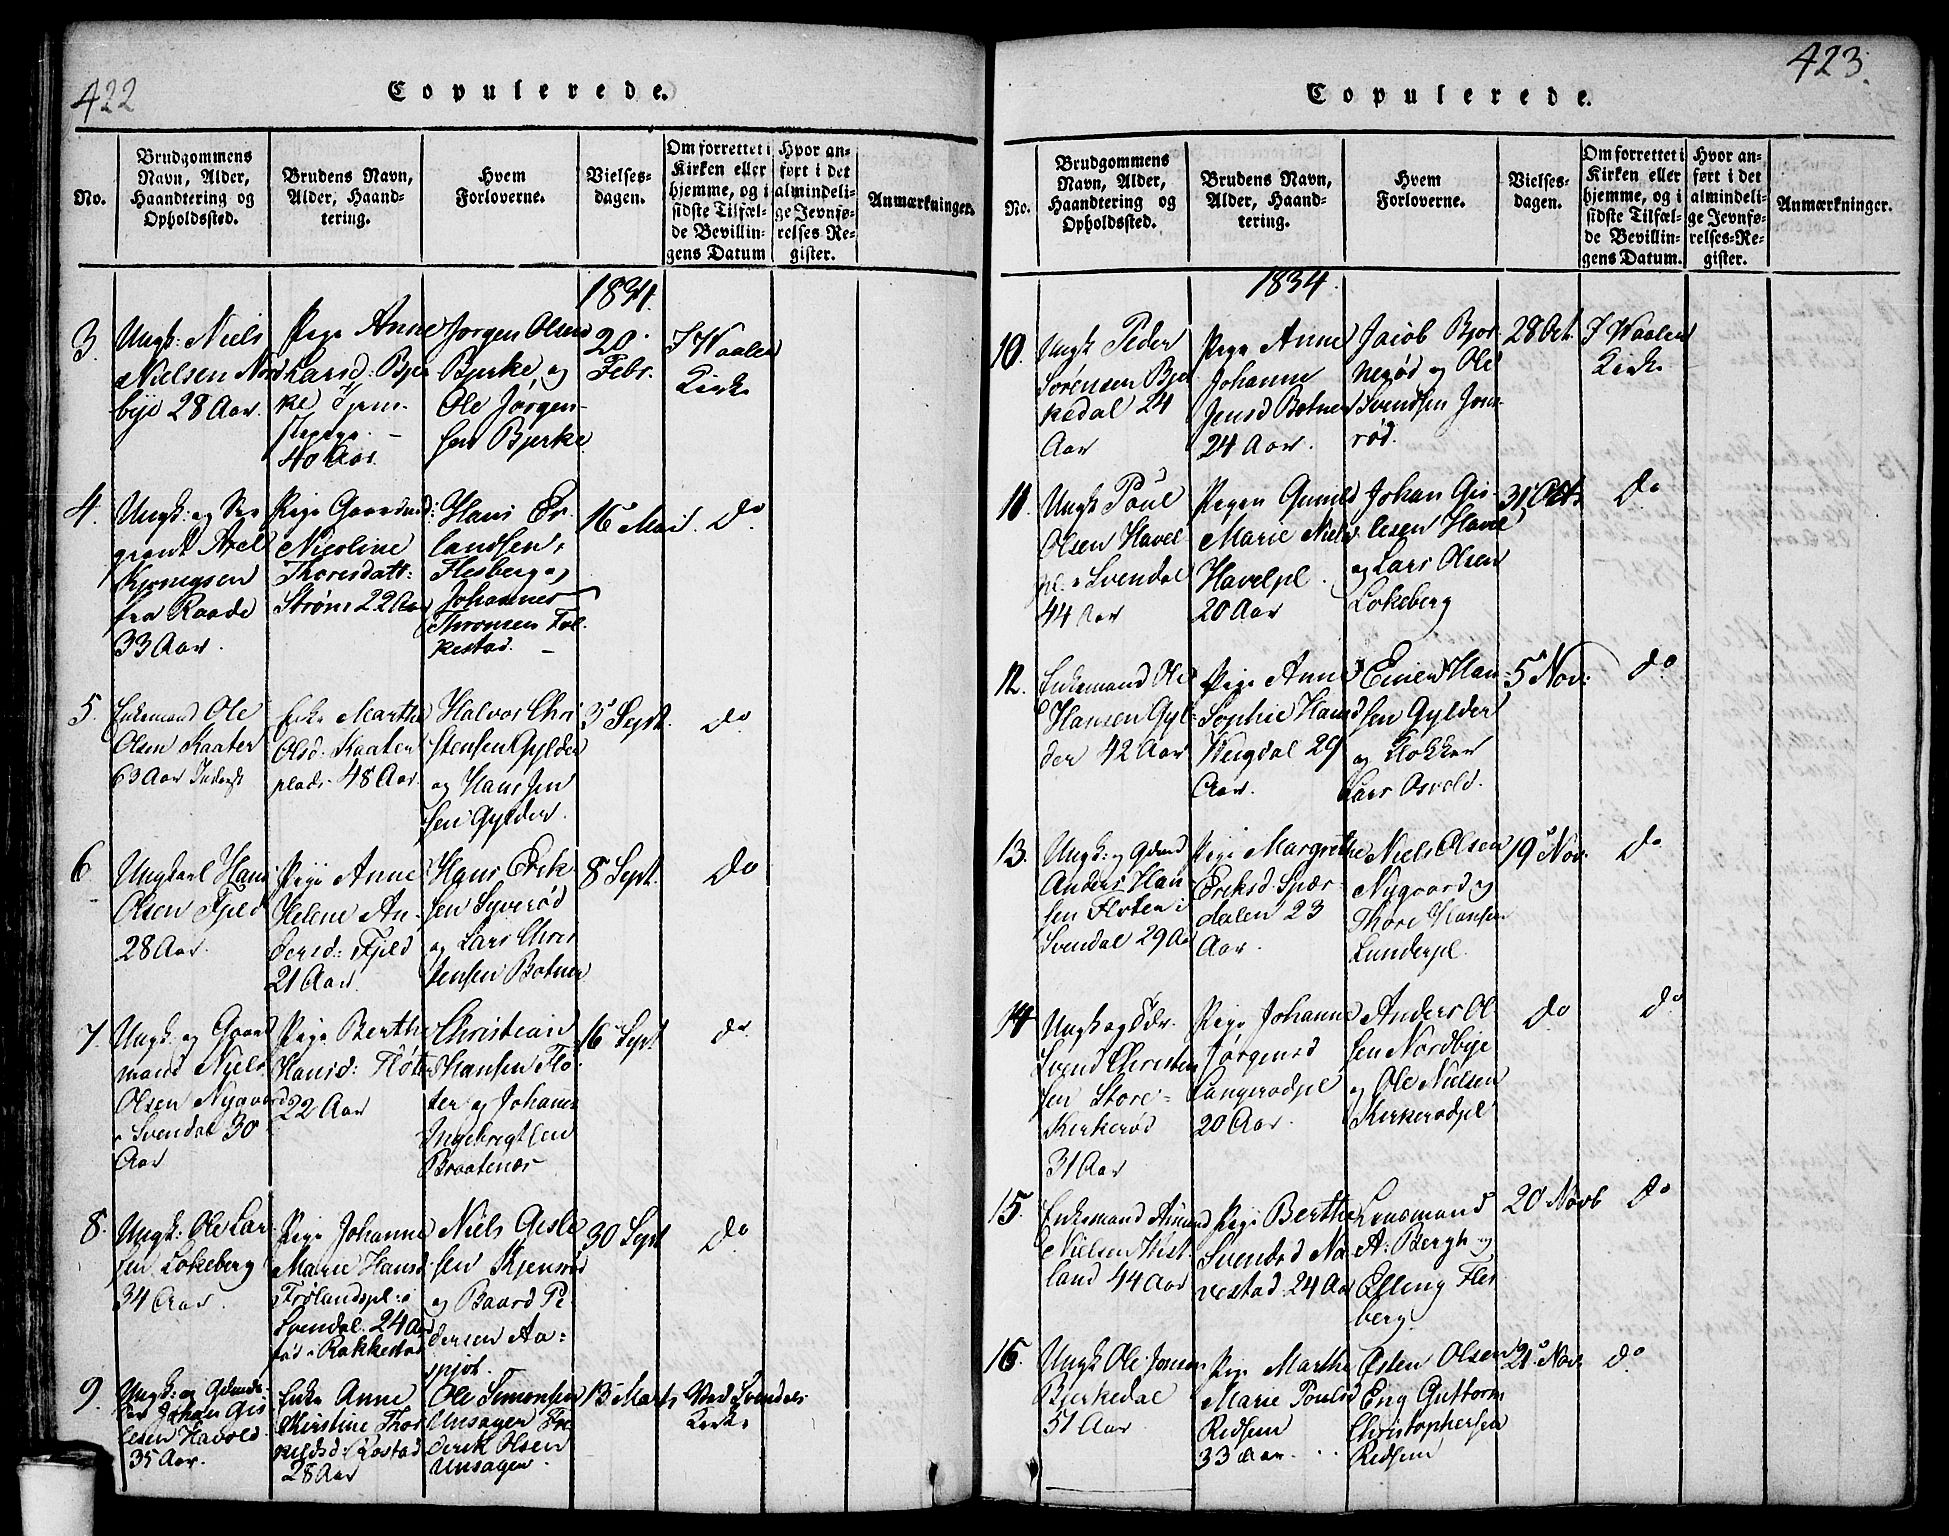 422
Copulerede.
No.
Brudgommens
Navn, Alder,
Haandtering og
Opholdssted.
Brudens Navn,
Alder, Haand-
tering.
Hvem
Forloverne.
Vielses-
dagen.
Om forrettet i
Kirken eller
hjemme, og i
sidste Tilfæl-
de Bevillin-
gens Datum
Hvor an-
ført i det
almindeli-
ge Jevnfø-
relses-Re-
gister.
Anmærkninger.
1834.
3.
Ungk: Niels
Nielsen Nord
bye 28 Aar.
Pige Anne
Larsd: Bjer
ke Tjene-
stepige. –
40 Aar.
Jørgen Olsen
Bjerke og
Ole Jørgen-
sen Bjerke
20.
Febr.
I Waaler
Kirke
4.
Ungk: og
Axel
fra Raade
33 Aar.
Pige
Nicoline
Thoresdatt:
Strøm 22 Aar
Hans Er-
landsen
Flesberg og
Johannes
Thronsen Fol-
kestad. –
16 Mai.
Do
5.
Enkemand Ole
Olsen Kaater
63 Aar Inderst
Enke Marthe
Olsd. Kaaten
plads 48 Aar.
Halvor Chri
stensen Gylder
og Hans Jen
sen Gylder.
3 Sept.
Do
6
Ungkarl Hans
Olsen Fjeld
28 Aar.
Pige Anne
Helene An-
dersd: Fjeld
21 Aar.
Hans Erik
sen Syverød
og Lars Chris
tensen Botner
8 Sept.
Do
7.
Ungk. og Gaard
mand Niels
Olsen Nygaard
i Svendal 30
Aar
Pige Berthe
Hansd: Fløter
22 Aar
Christian
Hansen Flø-
ter og Johans
Ingebrigtsen
Braatener
16 Sept
do
8.
Ungk: Ole Lar
sen Løkeberg
34 Aar.
Pige Johanne
Marie Hansd
Frølandspl: i
Svendal. 24 Aar
fød i Rakkestad
Niels Gisle
sen Kjensrød
og Baard Pe
dersen Aa=
30 Sept
Do
9.
Ungk: og
Johan Gis
lesen Havold
35 Aar.
Enke Anne
Kirstine Thor
28 Aar
Ole Simonsen
Unsager Fre
derik Olsen
Unsager.
13 Marts
Ved Svendals
Kirke
423.
Copulerede.
No.
Brudgommens
Navn, Alder,
Haandtering og
Opholdssted.
Brudens Navn,
Alder, Haand-
tering.
Hvem
Forloverne.
Vielses-
dagen.
Om forrettet i
Kirken eller
hjemme, og i
sidste Tilfæl-
de Bevillin-
gens Datum.
Hvor an-
ført i det
almindeli-
ge Jevnfø-
relses-Re-
gister.
Anmærkninger.
1834.
10.
Ungk Peder
Sørensen Bjer
kedal 24
Aar
Pige Anne
Johanne
Jensd Botner
24 Aar.
Jacob Bjør
nerød og Ole
Svendsen Jons
rød.
28 Oct.
I Waaler
Kirke
11.
Ungk Poul
Olsen Havel
pl. i Svendal
44 Aar
Pigen Gunild
Marie Niels
Havelpl.
20 Aar
Johan Gis-
lesen Havel
og Lars Olsen
Løkeberg
31 Oct.
Do
12.
Enkemand Ole
Hansen Gyl-
der 42 Aar
Pige Anne
Sophie Hansd
Kugdal 29
Aar.
Einer Han-
sen Gylder
og Klokker
Lars Osvold.
5 Nov:
do
13.
Ungk: og Gdmd
Anders Han-
sen Fløten i
Svendal 29 Aar
Pige Margrethe
Eriksd. Spær-
dalen 23
Aar.
Niels Olsen
Nygaard og
Thore Hansen
Lunderpl.
19 Nov.
Do
14
Ungk og
Svend Christen
sen Store=
Kirkerød
31 Aar
Pige Johanne
Jørgensd
Langerødpl
20 Aar.
Anders Ol
sen Nordbye
og Ole Nielsen
Kirkerødpl
Do
Do
15.
Enkemand Amund
Nielsen Vest-
land 44 Aar
Pige Berthe
Svendsd Na-
vestad. 24 Aar
Lensmand
A: Bergh og
Elling Fles
berg.
20 Novb
Do
16.
Ungk Ole Jonsen
Bjerkedal
51 Aar
Pige Marthe
Marie Poulsd
Redsem
33 Aar.
Esten Olsen
Eng Guttorm
Christophersen
Redsem
21 Nov.
do